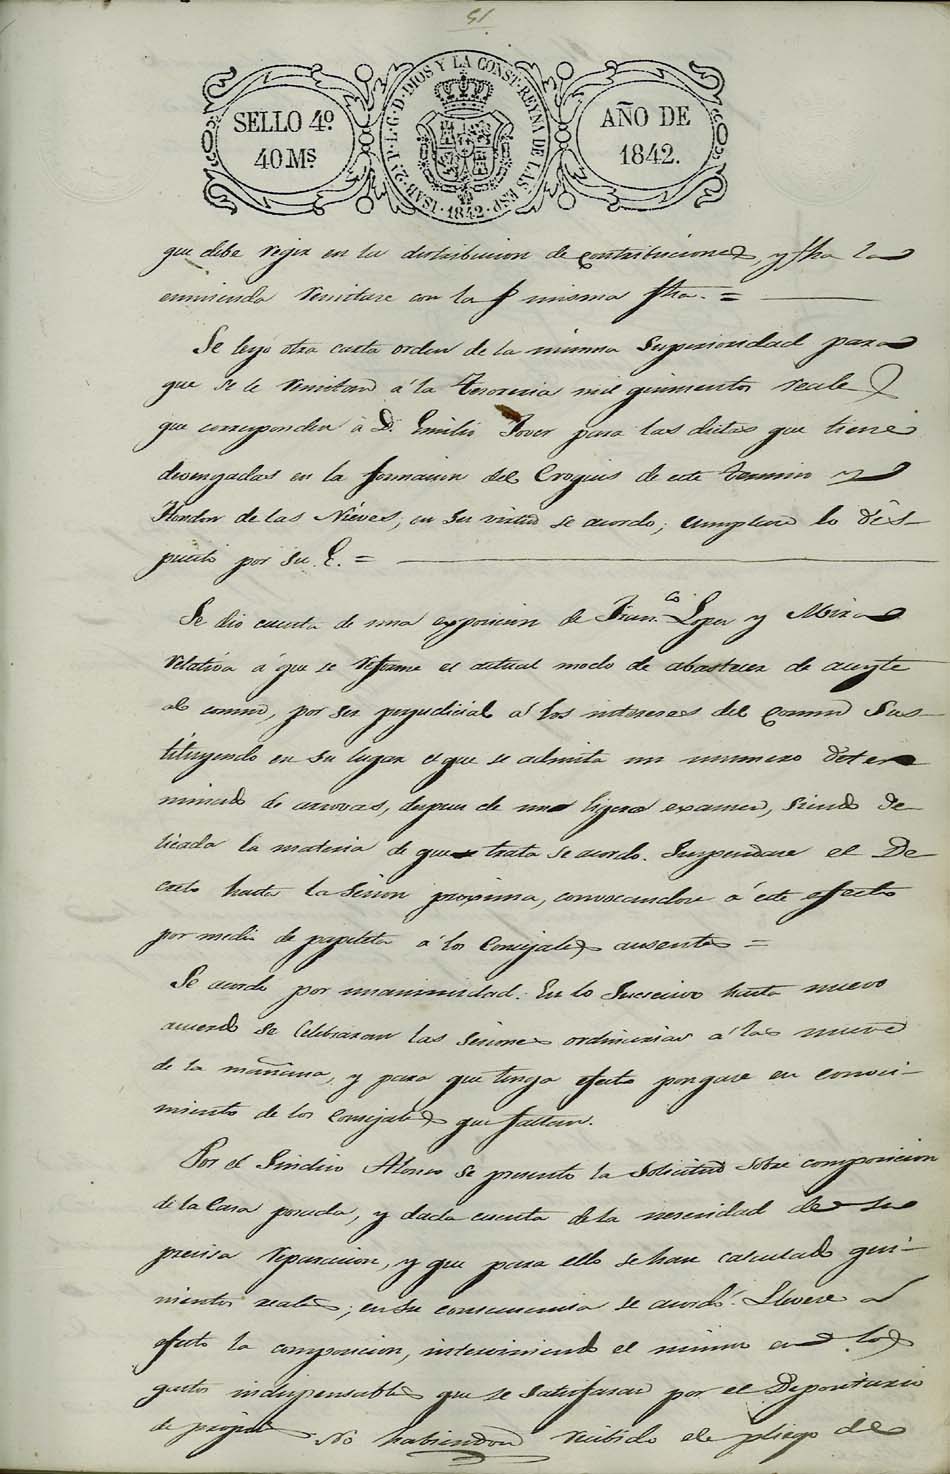 51
SELLO 4º
40 Ms
ISAB. 2ª P. L. G. D. DIOS Y LA CONST. REYNA DE LAS ESP.
1842
AÑO DE
1842.
que debe regir en la distribucion de contribuciones, y fha la
enmienda remitase con la misma fha. =
Se leyó otra carta orden de la misma Superioridad para
que se le remitan á la Tesoreria mil quinientos reales
que corresponden á D. Emilio Jover para las dietas que tiene
devengadas en la formacion del Croquis de este termino y
Hondon de las Nieves, en su virtud se acordo; cumplase lo dis-
puesto por su E. =
Se dio cuenta de una exposicion de Franco. Lopez y Mira
relativa á que se reforme el actual modo de abastecer de aceyte
al comun, por ser perjudicial á los intereses del comun sus-
tituyendo en su lugar el que se admita un numero deter
minado de arrovas, despues de una ligera examen, siendo de-
licada la materia de que trata se acordo. Suspendase el De
creto hasta la Sesion proxima, convocandose á este efecto
por medio de papeleta á los Concejales ausentes =
Se acordo por unanimidad: En lo Sucesivo hasta nuevo
acuerdo se celebraran las sesiones ordinarias á las nueve
de la mañana, y para que tenga efecto pongase en conoci-
miento de los Concejales que faltan.
Por el Sindico Alonso se presento la Solicitud sobre composicion
de la Casa posada, y dada cuenta de la necesidad de su
precisa reparacion, y que para ello se han calculado quin-
nientos reales; en su consecuencia se acordó: Llevese á
efecto la composicion, interviniendo el mismo en los
gastos indispensables que se satisfaran por el Depositario
de propios No habiendose recibido el pliego de